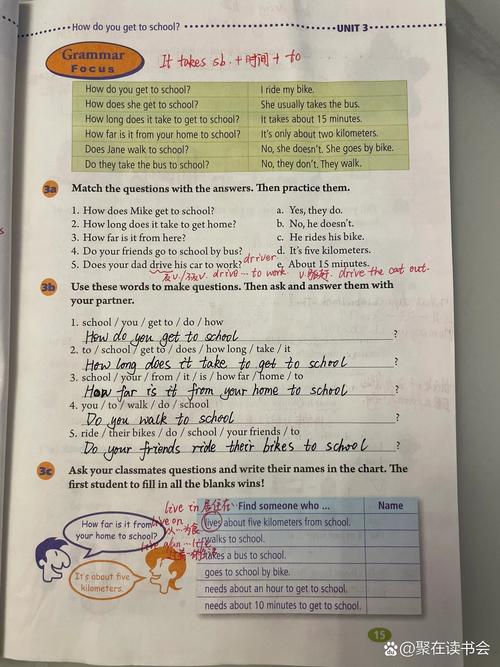 How do you get to school?
UNIT 3
Grammar
Focus
It takes sb. + 时间 + to
How do you get to school? I ride my bike.
How does she get to school? She usually takes the bus.
How long does it take to get to school? It takes about 15 minutes.
How far is it from your home to school? It's only about two kilometers.
Does Jane walk to school? No, she doesn't. She goes by bike.
Do they take the bus to school? No, they don't. They walk.
3a Match the questions with the answers. Then practice them.
1. How does Mike get to school? a. Yes, they do.
2. How long does it take to get home? b. No, he doesn't.
3. How far is it from here? c. He rides his bike.
4. Do your friends go to school by bus? d. It's five kilometers.
driver
5. Does your dad drive his car to work? e. About 15 minutes.
drive... to work drive the cat out.
3b Use these words to make questions. Then ask and answer them with
your partner.
1. school / you / get to / do / how
How do you get to school ?
2. to / school / get to / does / how long / take / it
How long does it take to get to school ?
3. school / your / from / it / is / how far / home / to
How far is it from your home to school ?
4. you / to / walk / do / school
Do you walk to school ?
5. ride / their bikes / do / school / your friends / to
Do your friends ride their bikes to school ?
3c Ask your classmates questions and write their names in the chart. The
first student to fill in all the blanks wins!
live in 居住在
Find someone who ... Name
How far is it from
your home to school?
live on
以…为食
lives about five kilometers from school.
walks to school.
takes a bus to school.
It's about five
kilometers.
goes to school by bike.
needs about an hour to get to school.
needs about 10 minutes to get to school.
15
聚在读书会